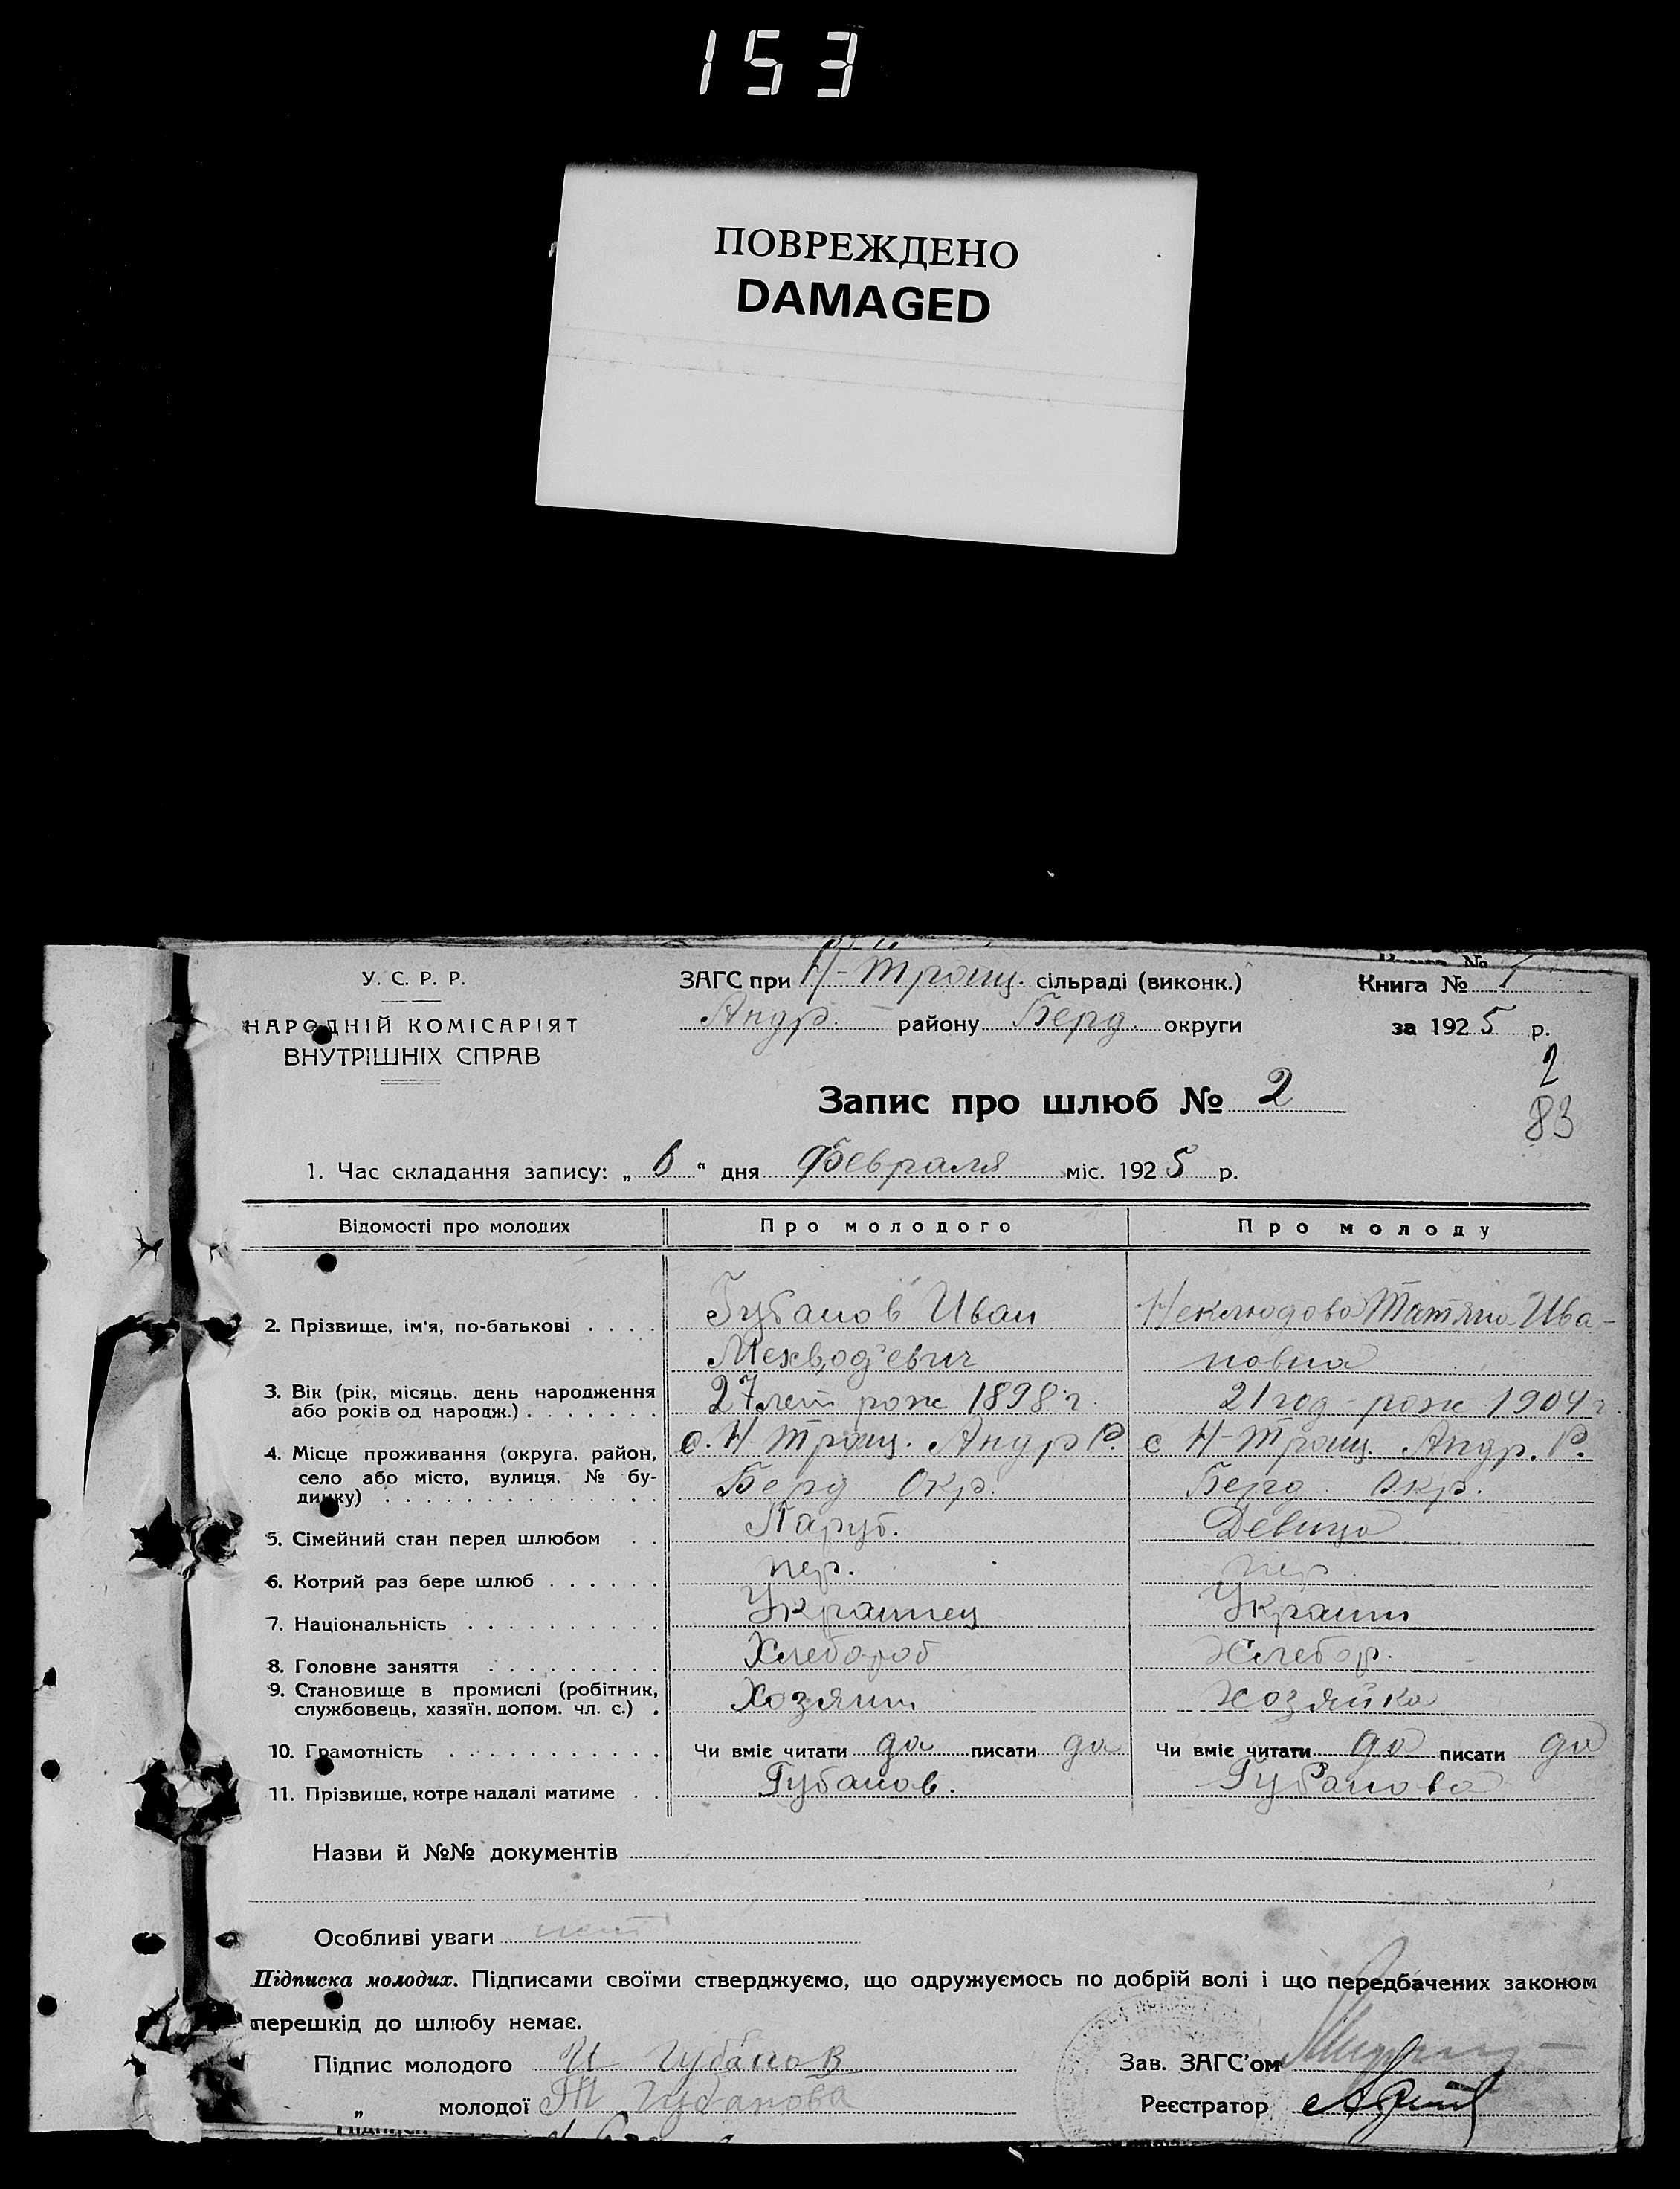 153
ПОВРЕЖДЕНО
DAMAGED
У. С. Р. Р.
НАРОДНІЙ КОМІСАРІЯТ
ВНУТРІШНІХ СПРАВ
ЗАГС при Н-Троиц. сільраді (виконк.)
Андр. району Берд. округи
Книга № 1
за 1925 р.
2
83
Запис про шлюб № 2
1. Час складання запису: „6“ дня Февраля міс. 1925 р.
Відомості про молодих Про молодого Про молоду
2. Прізвище, ім'я, по-батькові . . . . Губанов Иван Неклюдова Татяна Ива-
Мехвод'евич новна
3. Вік (рік, місяць, день народження
або років од народж.) . . . . . . . 27 лет рож 1898 г. 21 год - рож 1904 г.
с. Н Троиц. Андр Р. с Н-Троиц Андр. Р.
4. Місце проживання (округа, район,
село або місто, вулиця, № бу-
динку) . . . . . . . . . . . . . . Берд Окр. Берд. Окр.
5. Сімейний стан перед шлюбом . . Паруб. Девица
6. Котрий раз бере шлюб . . . . . . пер. пер.
7. Національність . . . . . . . . . . Украинец Украин
8. Головне заняття . . . . . . . . . Хлебороб Хлебор.
9. Становище в промислі (робітник,
службовець, хазяїн, допом. чл. с.) . Хозяин Хозяйка
10. Грамотність . . . . . . . . . . . Чи вміє читати да писати да Чи вміє читати да писати да
11. Прізвище, котре надалі матиме . . Губанов. Губанова
Назви й №№ документів
Особливі уваги нет
Підписка молодих. Підписами своїми стверджуємо, що одружуємось по добрій волі і що передбачених законом
перешкід до шлюбу немає.
Підпис молодого И Губанов
Зав. ЗАГС'ом
„ молодої Т Губанова
Реєстратор